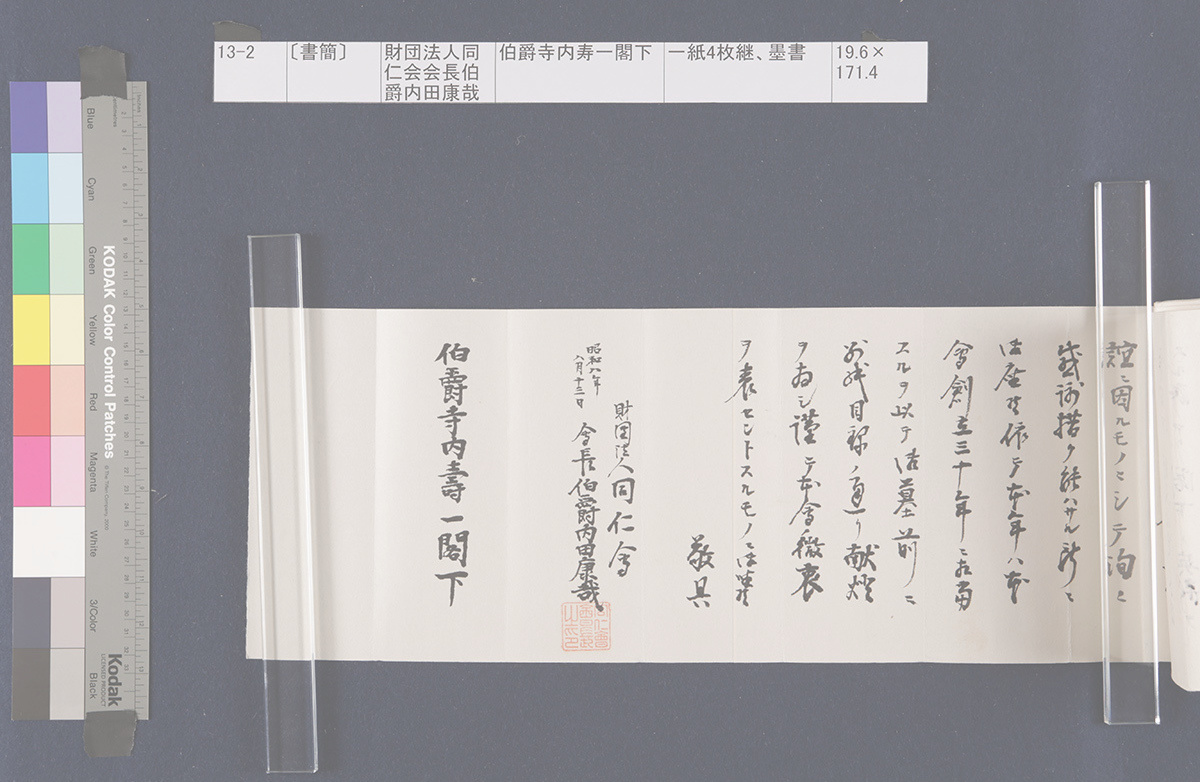 13-2
〔書簡〕
財団法人同
仁会会長伯
爵内田康哉
伯爵寺内寿一閣下
一紙4枚継、墨書
19.6×
171.4
KODAK Color Control Patches
Blue
Cyan
Green
Yellow
Red
Magenta
White
3/Color
Black
Kodak
LICENSED PRODUCT
因ルモノニシテ洵ニ
感謝措ク能ハサル所ニ
御座候依テ本年ハ本
會創立三十年ニ相當
スルヲ以テ御墓前ニ
別紙目録ノ通リ献燈
ヲ為シ謹テ本會微衷
ヲ表セントスルモノニ御座候
敬具
財団法人同仁會
昭和八年
八月十三日
會長伯爵内田康哉
伯爵寺内壽一閣下